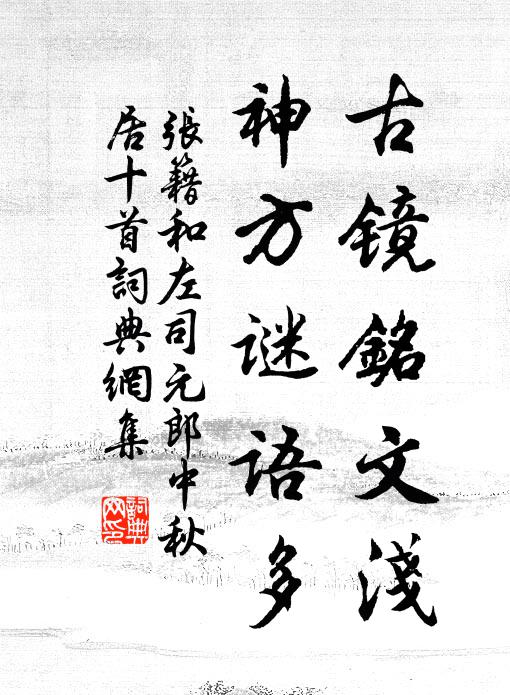 古镜銘文淺
神方谜语多
張籍和左司元郎中秋
居十首詞典網集
詞典
网印